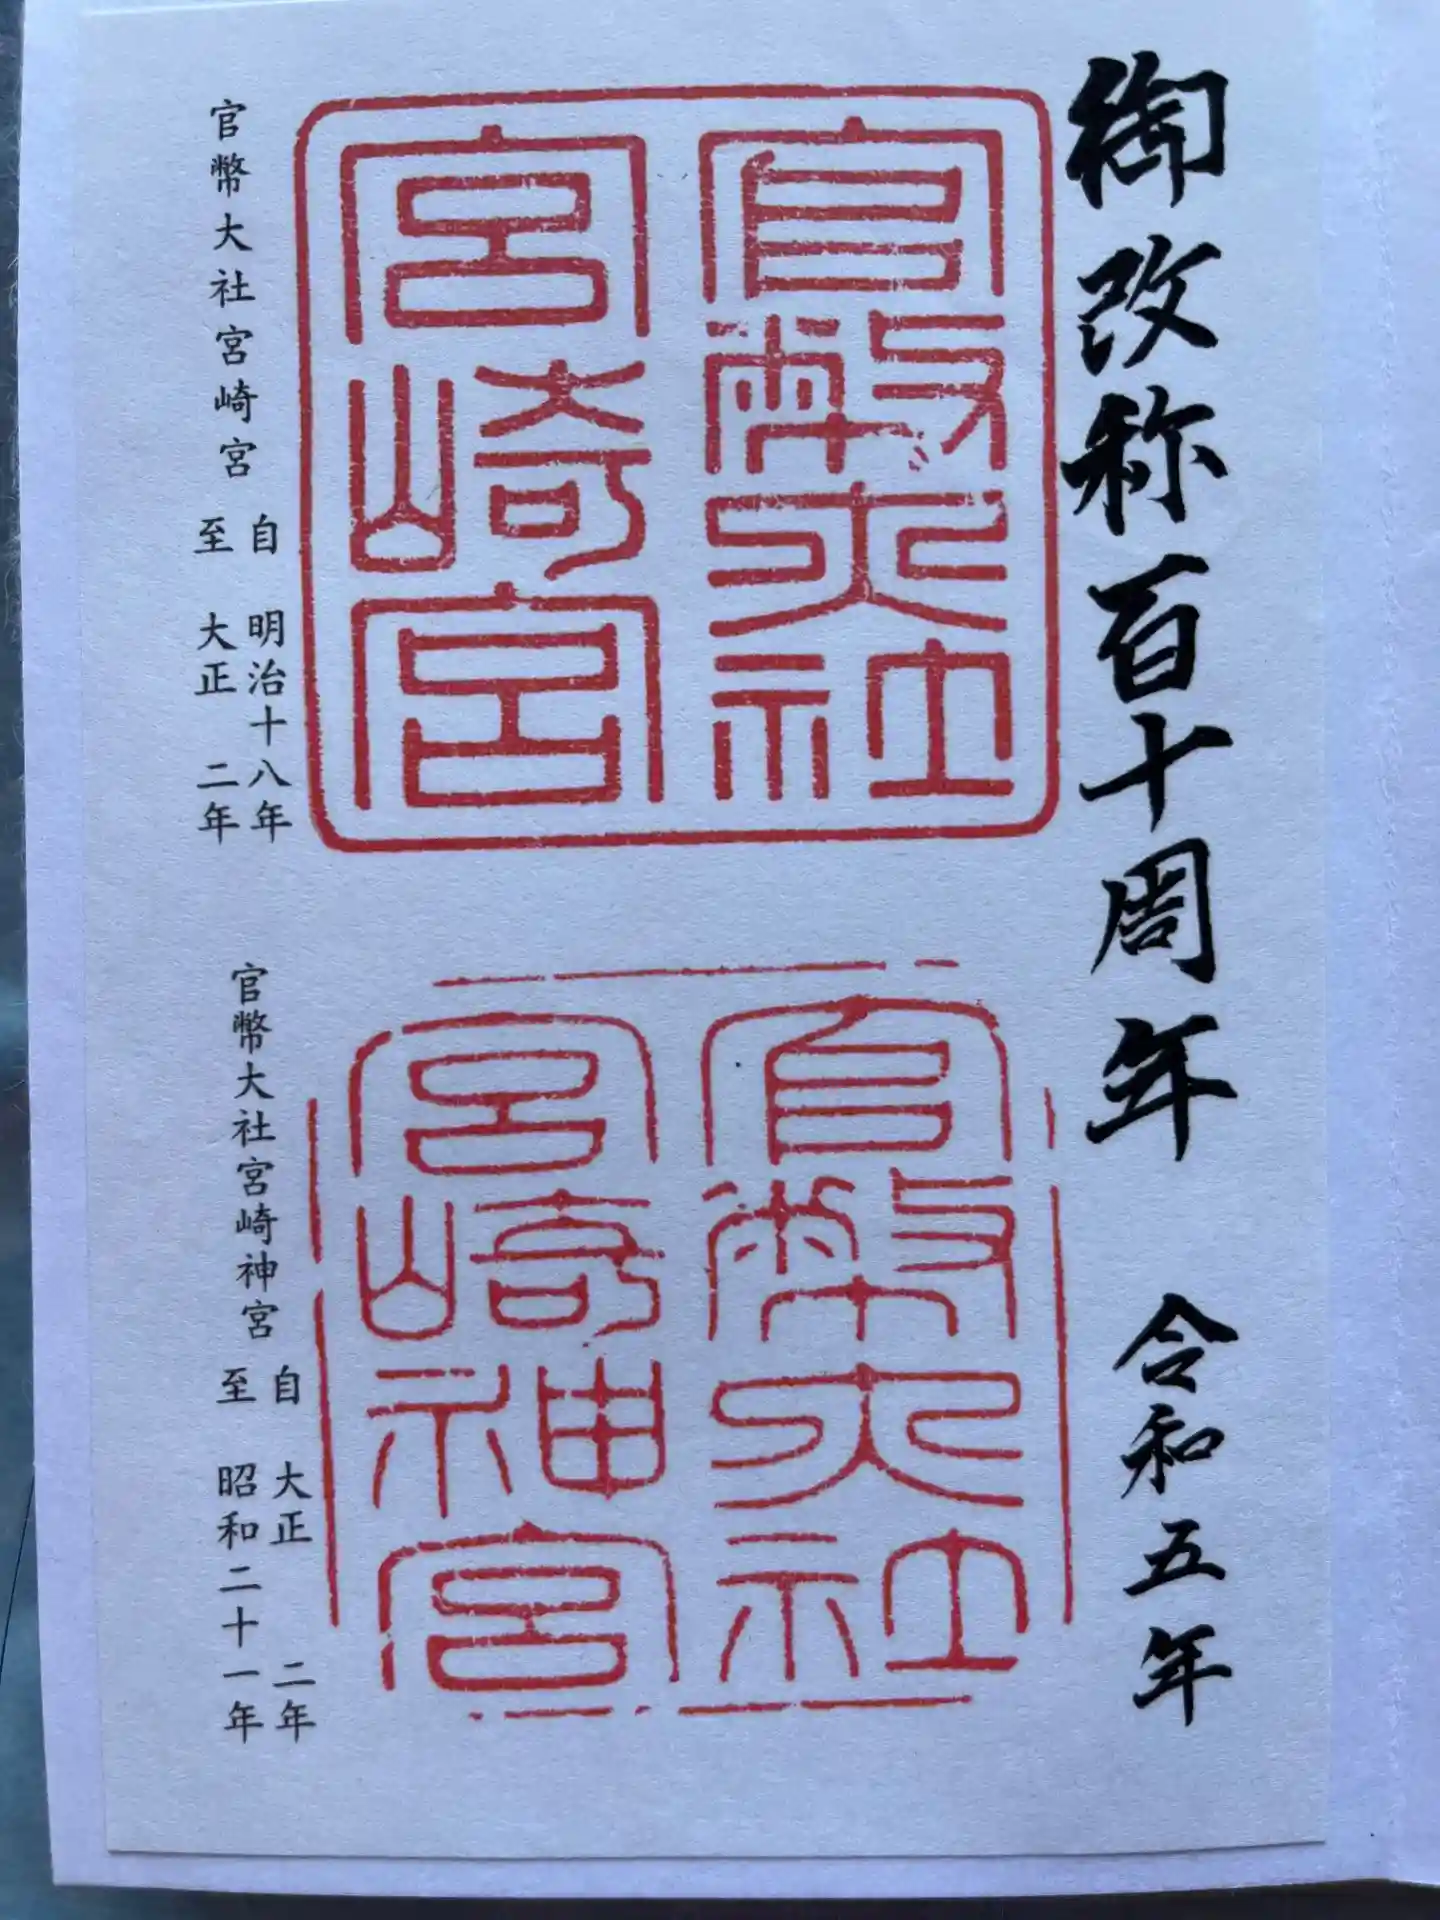 御改称百十周年 令和五年
官幣大社
宮崎宮
官幣大社宮崎宮
自 明治十八年
至 大正 二年
官幣大社
宮崎神宮
官幣大社宮崎神宮
自 大正 二年
至 昭和二十一年